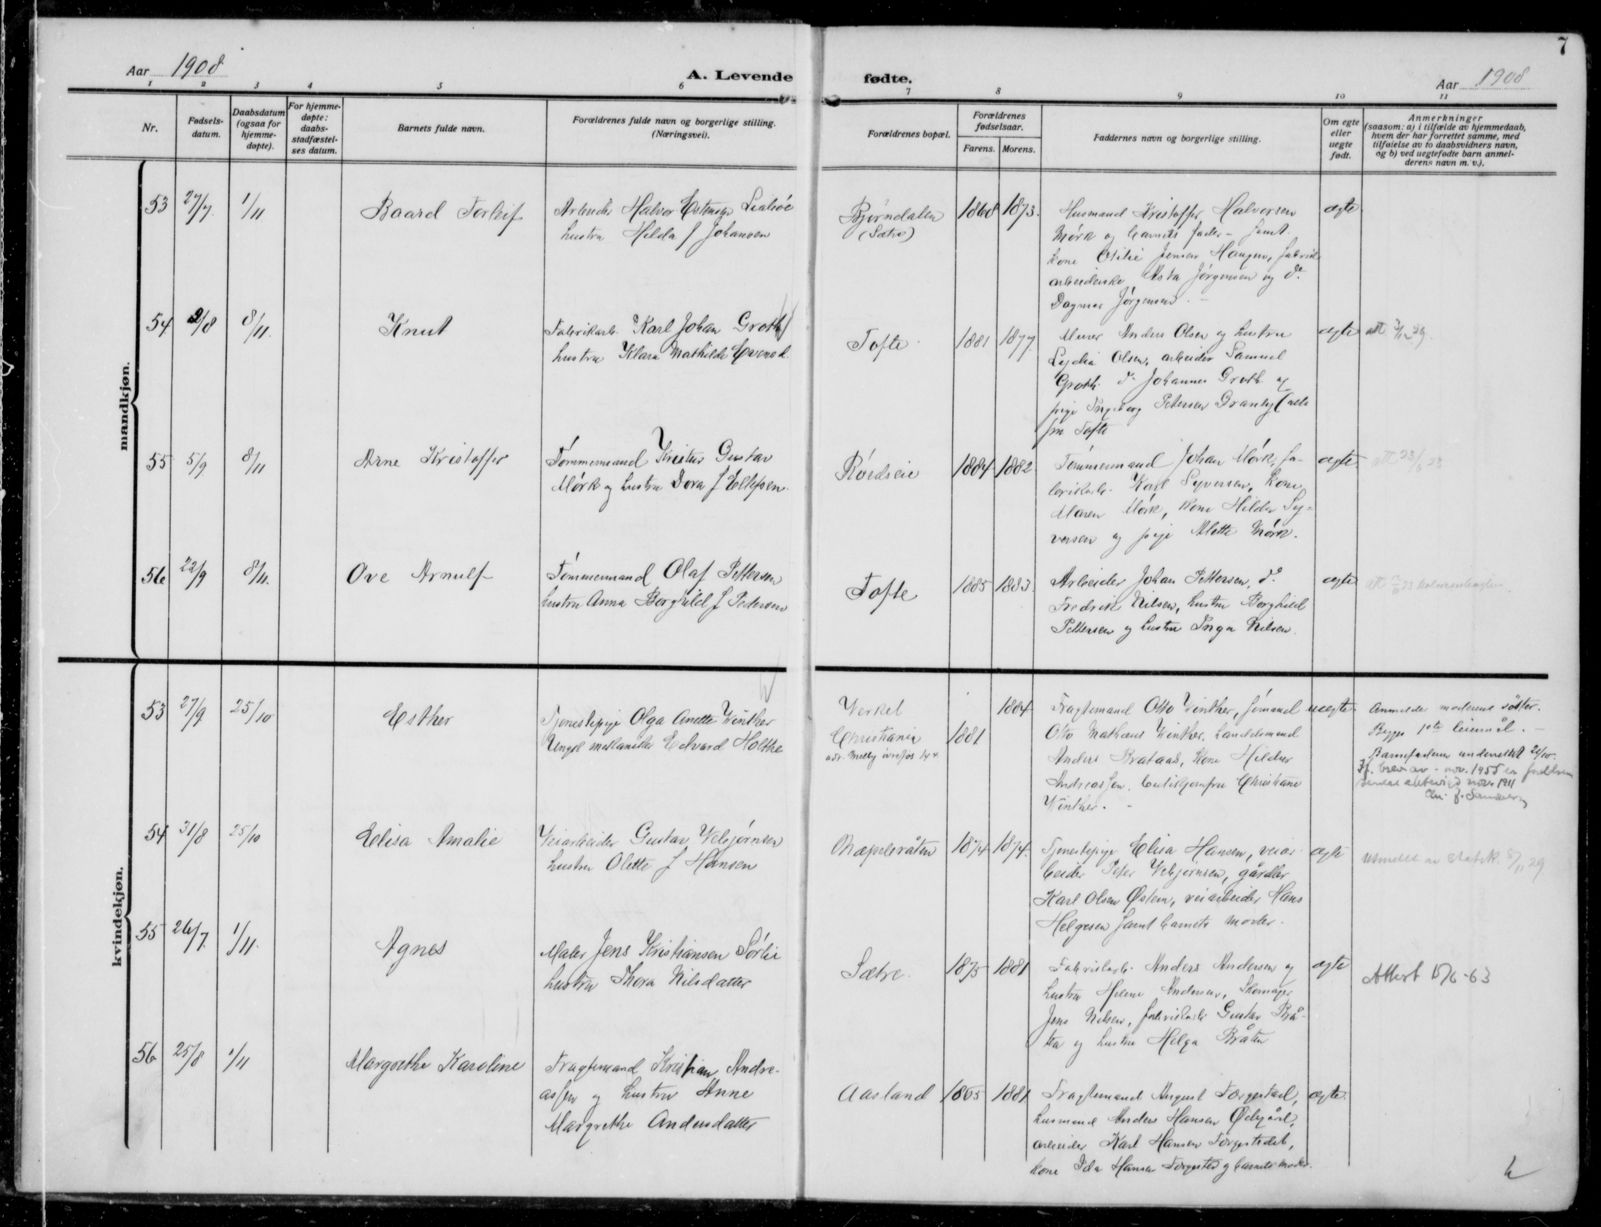 7
Aar 1908
A. Levende fødte.
Aar 1908
1 2 3 4 5 6 7 8 9 10 11
Nr.
Fødsels-
datum.
Daabsdatum
(ogsaa for
hjemme-
døpte).
For hjemme-
døpte:
daabs-
stadfæstel-
ses datum.
Barnets fulde navn.
Forældrenes fulde navn og borgerlige stilling.
(Næringsvei).
Forældrenes bopæl.
Forældrenes
fødselsaar.
Farens. Morens.
Faddernes navn og borgerlige stilling.
Om egte
eller
uegte
født.
Anmerkninger
(saasom: a) i tilfælde av hjemmedaab,
hvem der har forrettet samme, med
tilføielse av to daabsvidners navn,
og b) ved uegtefødte barn anmel-
derens navn m. v.).
mandkjøn.
53 27/7 1/11
Baard Torleif
Arbeider Halvor
hustru Hilda f Johansen
Bjørndalen
(Sætre)
1868 1873.
Husmand Kristoffer Halvorsen
Mørk og barnets fader - samt
kone Otilie Jensen Haugen, fabrik
arbeiderske Asta Jørgensen og do
Dagmar Jørgensen. -
egte
54 2/8 8/11
Knut
Fabrikarb. Karl Johan Groth
hustru Klara Mathilde
Tofte
1881 1877.
Murer Anders Olsen og hustru
Lydia Olsen, arbeider Samuel
Groth do Johannes Groth og
pige Ingeborg Petersen Dranby (alle
fra Tofte
egte
55 5/9 8/11
Arne Kristoffer
Tømmermand Kristian Gustav
Mørk og hustru Dora f Ellefsen
Rødseie
1884 1882
Tømmermand Johan Mørk, fa-
brikarb. Karl Syversen, kone
Maren Mørk, kone Hilda Sy-
versen og pige Mørk.
egte
56 22/9 8/11.
Ove Arnulf
Tømmermand Olaf Pettersen
hustru Anna Borghild f Pedersen
Tofte
1885 1883.
Arbeider Johan Pettersen, do
Fredrik Nilsen, hustru Borghild
Pettersen og hustru Inga Nilsen.
egte
kvindekjøn.
53 27/9 25/10
Esther
Tjenestepige Olga Anette Winther
Ungk. Edvard Holthe
Verket
Christiania
1881 1884
Fragtemand Otto Winther, sømand
Otto Mathæus Winther, Landdsmand
Anders Brataas, kone Hilda
Andreassen, Christiane
Winther. -
uegte
Anmelder moderens søster.
Begges 1ste leiermål. -
Barnefaderen underrettet
Jf. brev av - nov. 1955
54 31/8 25/10
Elisa Amalie
Veiarbeider Gustav Vebjørnsen
hustru Olette f Hansen
Næpesråten
1874 1874.
Tjenestepige Elisa Hansen, veiar
beider Peter Vebjørnsen, gårdbr.
Karl Olsen Østern, veiarbeider Hans
Helgesen samt barnets moder.
egte
8/11 29
55 26/7 1/11.
Agnes
Maler Jens Kristiansen Sørlie
hustru Thora Nilsdatter
Sætre.
1875 1881
Fabrikarb. Anders Andersen og
hustru Helene Andersen, Skomager
Jens Nilsen, fabrikarb Gustav Brå-
ta og hustru Helga Bråten
egte
Attest 15/6-63
56 25/8 1/11
Margrethe Karoline
Fragtemand Kristian Andre-
assen og hustru Anne
Margrethe Andersdatter
Aasland
1865 1881
Fragtemand August Torgestad,
husmand Anders Hansen Ødegård,
arbeider Karl Hansen Torgestedet,
kone Ida Hansen Torgestad og barnets moder.
egte.